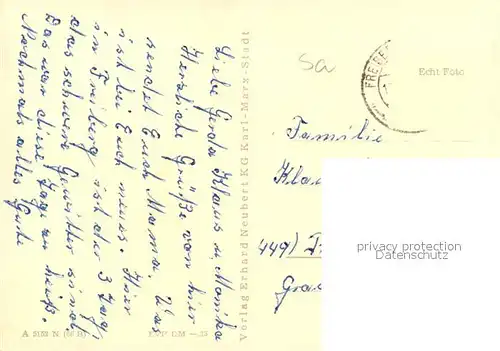 Liebe Gerda Klaus u. Monika
Herzliche Grüße von hier
sendet Euch Mama. Was
ist bei Euch neues. Hier
in Freiberg ist der 3 Tag,
das schwere Gewitter sind.
Das war diese Tage so heiß.
Nochmals alles Gute
Verlag Erhard Neubert KG Karl-Marx-Stadt
A 5132 N
EVP DM
5a
FREIBE
Echt Foto
Familie
Kla
449)
Gra
privacy protection
ansichtskarten-lexikon.de